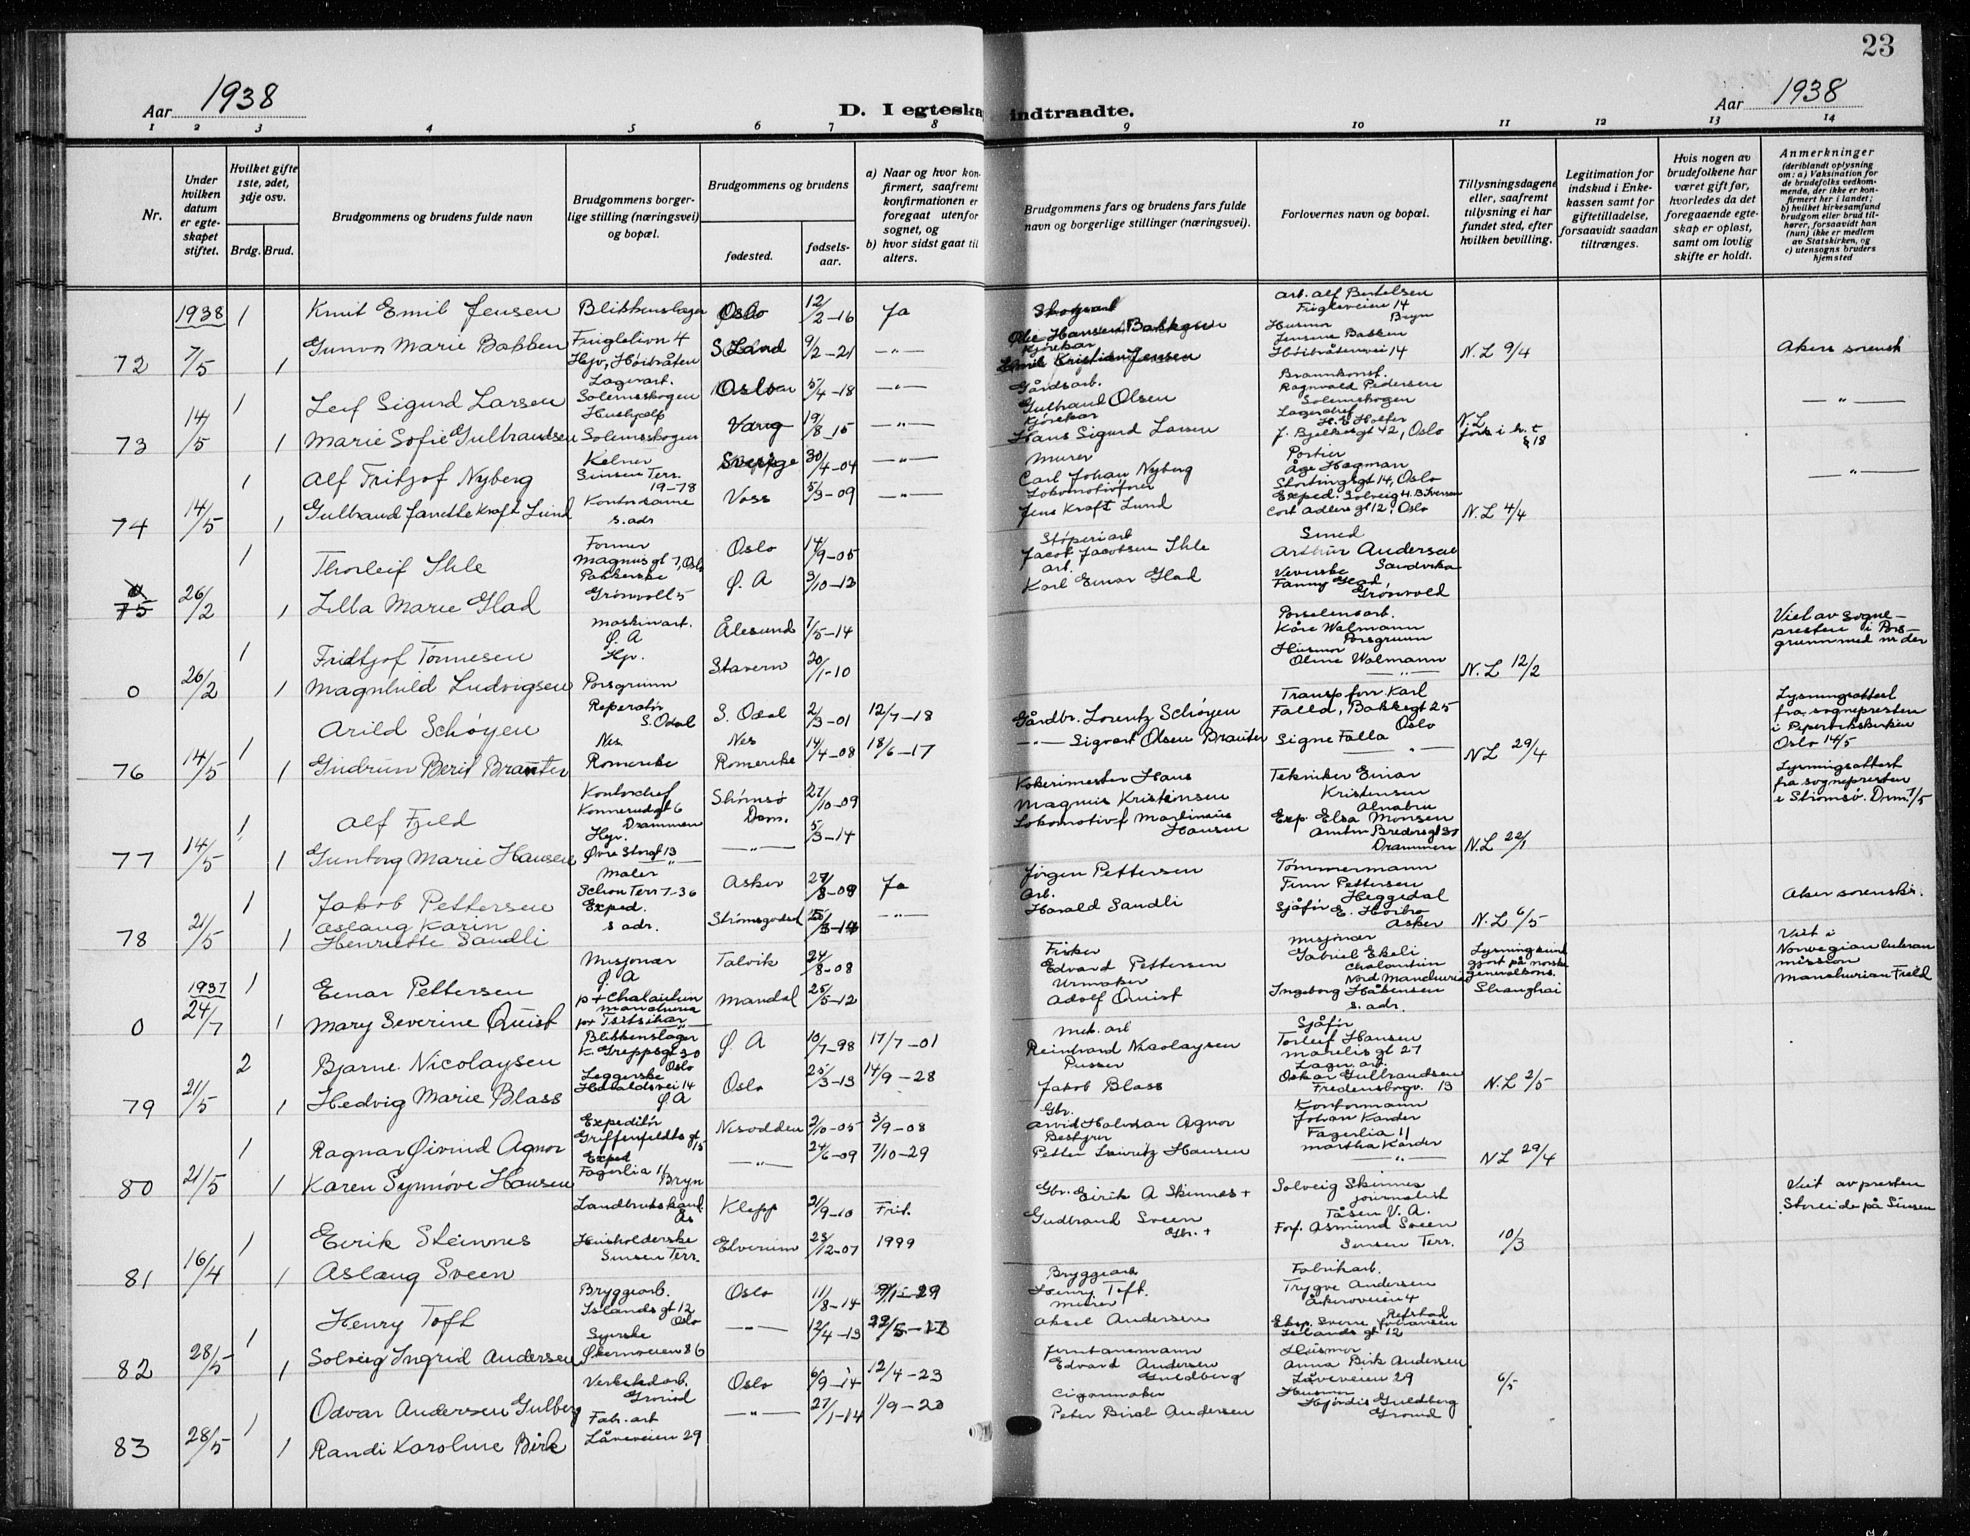 23
Aar 1938
D. I egteska indtraadte.
Aar 1938
1 2 3 4 5 6 7 8 9 10 11 12 13 14
Nr.
Under hvilken datum er egteskapet stiftet.
Hvilket gifte 1ste, 2det, 3dje osv.
Brdg. Brud.
Brudgommens og brudens fulde navn
Brudgommens borgerlige stilling (næringsvei) og bopæl.
Brudgommens og brudens
fødested.
fødselsaar.
a) Naar og hvor konfirmert, saafremt konfirmationen er foregaat utenfor sognet, og
b) hvor sidst gaat til alters.
Brudgommens fars og brudens fars fulde navn og borgerlige stillinger (næringsvei).
Forlovernes navn og bopæl.
Tillysningsdagene eller, saafremt tillysning ei har fundet sted, efter hvilken bevilling.
Legitimation for indskud i Enkekassen samt for giftetilladelse, forsaavidt saadan tiltrænges.
Hvis nogen av brudefolkene har været gift før, hvorledes da det foregaaende egteskap er opløst, samt om lovlig skifte er holdt.
Anmerkninger
(deriblandt oplysning om: a) Vaksination for de brudefolks vedkommende, der ikke er konfirmert her i landet; b) hvilket kirkesamfund brudgom eller brud tilhører, forsaavidt han (hun) ikke er medlem av Statskirken, og c) utensogns bruders hjemsted
1938
72 7/5 1 1
Knut Emil Jensen
Gunvor Marie Bakken
Blikkenslager
Hjv., Høibråten
Oslo 12/2-16 Ja
9/2-21 —"—
Arb. Alf Bertelsen
Husmor Bryn
Jensine Bakken
Høibråtenvei 14
N.L 9/4
Aker sorensk
73 14/5 1 1
Leif Sigurd Larsen
Marie Sofie Gulbrandsen
Lagerarb.
Solemskogen
Hushjelp
Solemskogen
5/4-18 —"—
Vang 19/8-15 —"—
Gårdsarb.
Gulbrand Olsen
Kjørekar
Hans Sigurd Larsen
Ragnvald Pedersen
Solemskogen
J. Bjelkesgt 42, Oslo
N.L
—"—
74 14/5 1 1
Alf Fritjof Nyberg
Gulbraud Janette Kraft Lund
Kelner
Sinsen Terr.
19-78
Kontordame
s. adr.
Sverige 30/4-04 —"—
Voss 5/3-09 —"—
Murer
Carl Johan Nyberg
Lokomotivfører
Jens Kraft Lund
Portier
Åge Hagman
Stortingsgt 14, Oslo
Exped. Solveig H. B. Iversen
Cort Adlers gt 12, Oslo
N.L 4/4
—"—
0
75 26/2 1 1
Thorleif Ihle
Lilla Marie Glad
Former
Magnus gt 7, Oslo
Pakkerske
Grønvoll 5
Oslo 14/9-05
Ø. A 3/10-12
Støperiarb
Jacob Jacobsen Ihle
arb.
Karl Einar Glad
Smed
Arthur Andersen
Veverske Sandvika
Fanny Glad,
Grønvold
0 26/2 1 1
Fridtjof Tønnesen
Magnhild Ludvigsen
Maskinarb.
Ø. A
Hjv.
Porsgrunn
Ålesund 7/5-14
Stavern 20/1-10
Porselensarb.
Kåre Walmann
Porsgrunn
Husmor
Oline Walmann
—"—
N.L 12/2
Viet av sogne-
presten i Pors-
grunn med nr der
76 14/5 1 1
Arild Schøyen
Gudrun Berit Brauter
Reperatør
S. Odal
Nes
Romerike
S. Odal 2/3-01 12/7-18
Nes
Romerike 14/4-08 18/6-17
Gårdbr. Lorentz Schøyen
—"— Sigvart Olsen Brauter
Transp.forr Karl
Falla, Bakkegt 25
Oslo
Signe Falla
—"—
NL 29/4
Lysningsattest
fra sognepresten
i Piperviksk­irken
Oslo 14/5
77 14/5 1 1
Alf Fjeld
Gunborg Marie Hansen
Kontorchef
Konnerudgt 6
Drammen
Hjv.
Øvre Storgt 13
—"—
Strømsø
Dram. 27/10-09
—"— 5/3-14
Kokerimester Hans
Magnus Kristensen
Lokomotivf Martinius
Hansen
Tekniker Einar
Kristensen
Alnabru
Exp Elsa Monsen
Amtm Bredersgt 30
Drammen
N.L 22/1
Lysningsattest
fra sognepresten
i Strømsø. Dram. 7/5
78 21/5 1 1
Jakob Pettersen
Aslaug Karin
Henriette Sandli
Maler
Schou Terr 7-36
Exped.
s adr.
Asker 27/8-09 Ja
Strømsgodset —"—
Jørgen Pettersen
Arb.
Harald Sandli
Tømmermann
Finn Pettersen
Heggedal
Sjåfør E. Høibro
Asker
N.L 6/5
Aker sorenskr.
1937
0 24/7 1 1
Einar Pettersen
Mary Severine Quist
Misjonær
Ø. A
p.t Chalantun
Manchuria
p.t Tsitsikar
Talvik 24/8-08
Mandal 25/5-12
Fisker
Edvard Pettersen
Urmaker
Adolf Quist
Misjonær
Gabriel Ekeli
Chalantun
Nord Manchuria
Ingeborg Håbensen
s. adr.
Lysning kunngjort på norske
generalkons.
Shanghai
Viet i
Norwegian lutheran
mission
Manchurian Field
79 21/5 2 1
Bjarne Nicolaysen
Hedvig Marie Blass
Blikkenslager
K. Greppsgt 30
Oslo
Leggerske
Haraldsvei 14
Ø A
Ø. A 10/7-98 17/7-01
Oslo 25/3-13 14/9-28
Mek. arb
Reinhard Nicolaysen
Pusser
Jakob Blass
Sjåfør
Torleif Hansen
Marelis gt 27
Lager arb.
Oskar Gulbrandsen
Fredensborgv. 13
N.L 2/5
80 21/5 1 1
Ragnar Øivind Agnor
Karen Synnøve Hansen
Expeditør
Griffenfeldts gt 15
Exped
Fagerlia 11
Bryn
Nesodden 2/10-05 3/9-08
—"— 24/6-09 7/10-29
Gbr.
Arvid Halvdan Agnor
Bestyrer
Petter Lauritz Hansen
Kontormann
Johan Karder
Fagerlia 11
Martha Karder
—"—
NL 29/4
81 16/4 1 1
Eirik Steinnes
Aslaug Sveen
Landbrukskand.
Ås
Husholderske
Sinsen Terr.
Klepp 21/9-10 Frit.
Elverum 23/12-07 1999
Gbr. Eirik A Steinnes +
Gudbrand Sveen
Gbr. +
Solveig Steinnes
journalist
Tåsen V. A.
Forf. Asmund Sveen
Sinsen Terr.
10/3
Viet av presten
Storeide på Sinsen
82 28/5 1 1
Henry Toft
Solveig Ingrid Andersen
Bryggearb.
Islands gt 12
Oslo
Syerske
Økernveien 86
Oslo 11/8-14
—"— 12/4-13
Bryggearb
Henry Toft.
Murer
Aksel Andersen
Fabrikarb.
Trygve Andersen
Åkeroveien 4
Refstad
Eksp. Sverre Johansen
Islands gt 12
83 28/5 1 1
Odvar Andersen Gulberg
Randi Karoline Birk
Verkstedarb.
Grorud
Fab. arb
Låveveien 29
Oslo 6/9-14 12/4-23
—"— 27/1-14 1/9-20
Edvard Andersen
Guldberg
Cigarmaker
Peter Birch Andersen
Husmor
Anna Birk Andersen
Låveveien 29
Husmor
Hjørdis Guldberg
Grorud
6/5